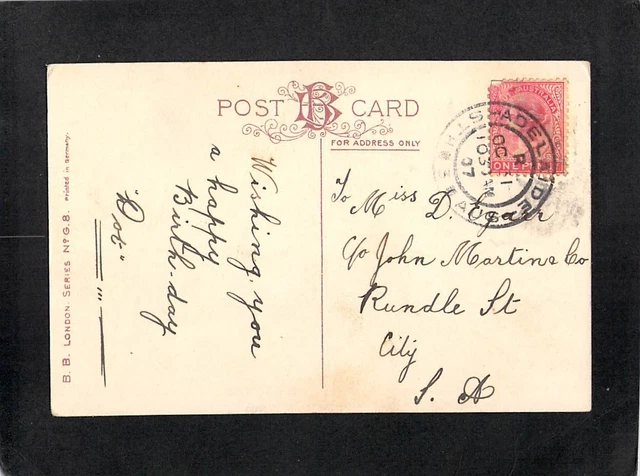 POST B CARD
FOR ADDRESS ONLY
AUSTRALIA
ONE P
ADELAIDE
OC 31
07
S. AUS
To Miss D.
C/o John Martins Co
Rundle St
City
S. A
Wishing you
a happy
Birth-day
"Dot"
B. B. LONDON. SERIES No G. 8. Printed in Germany.